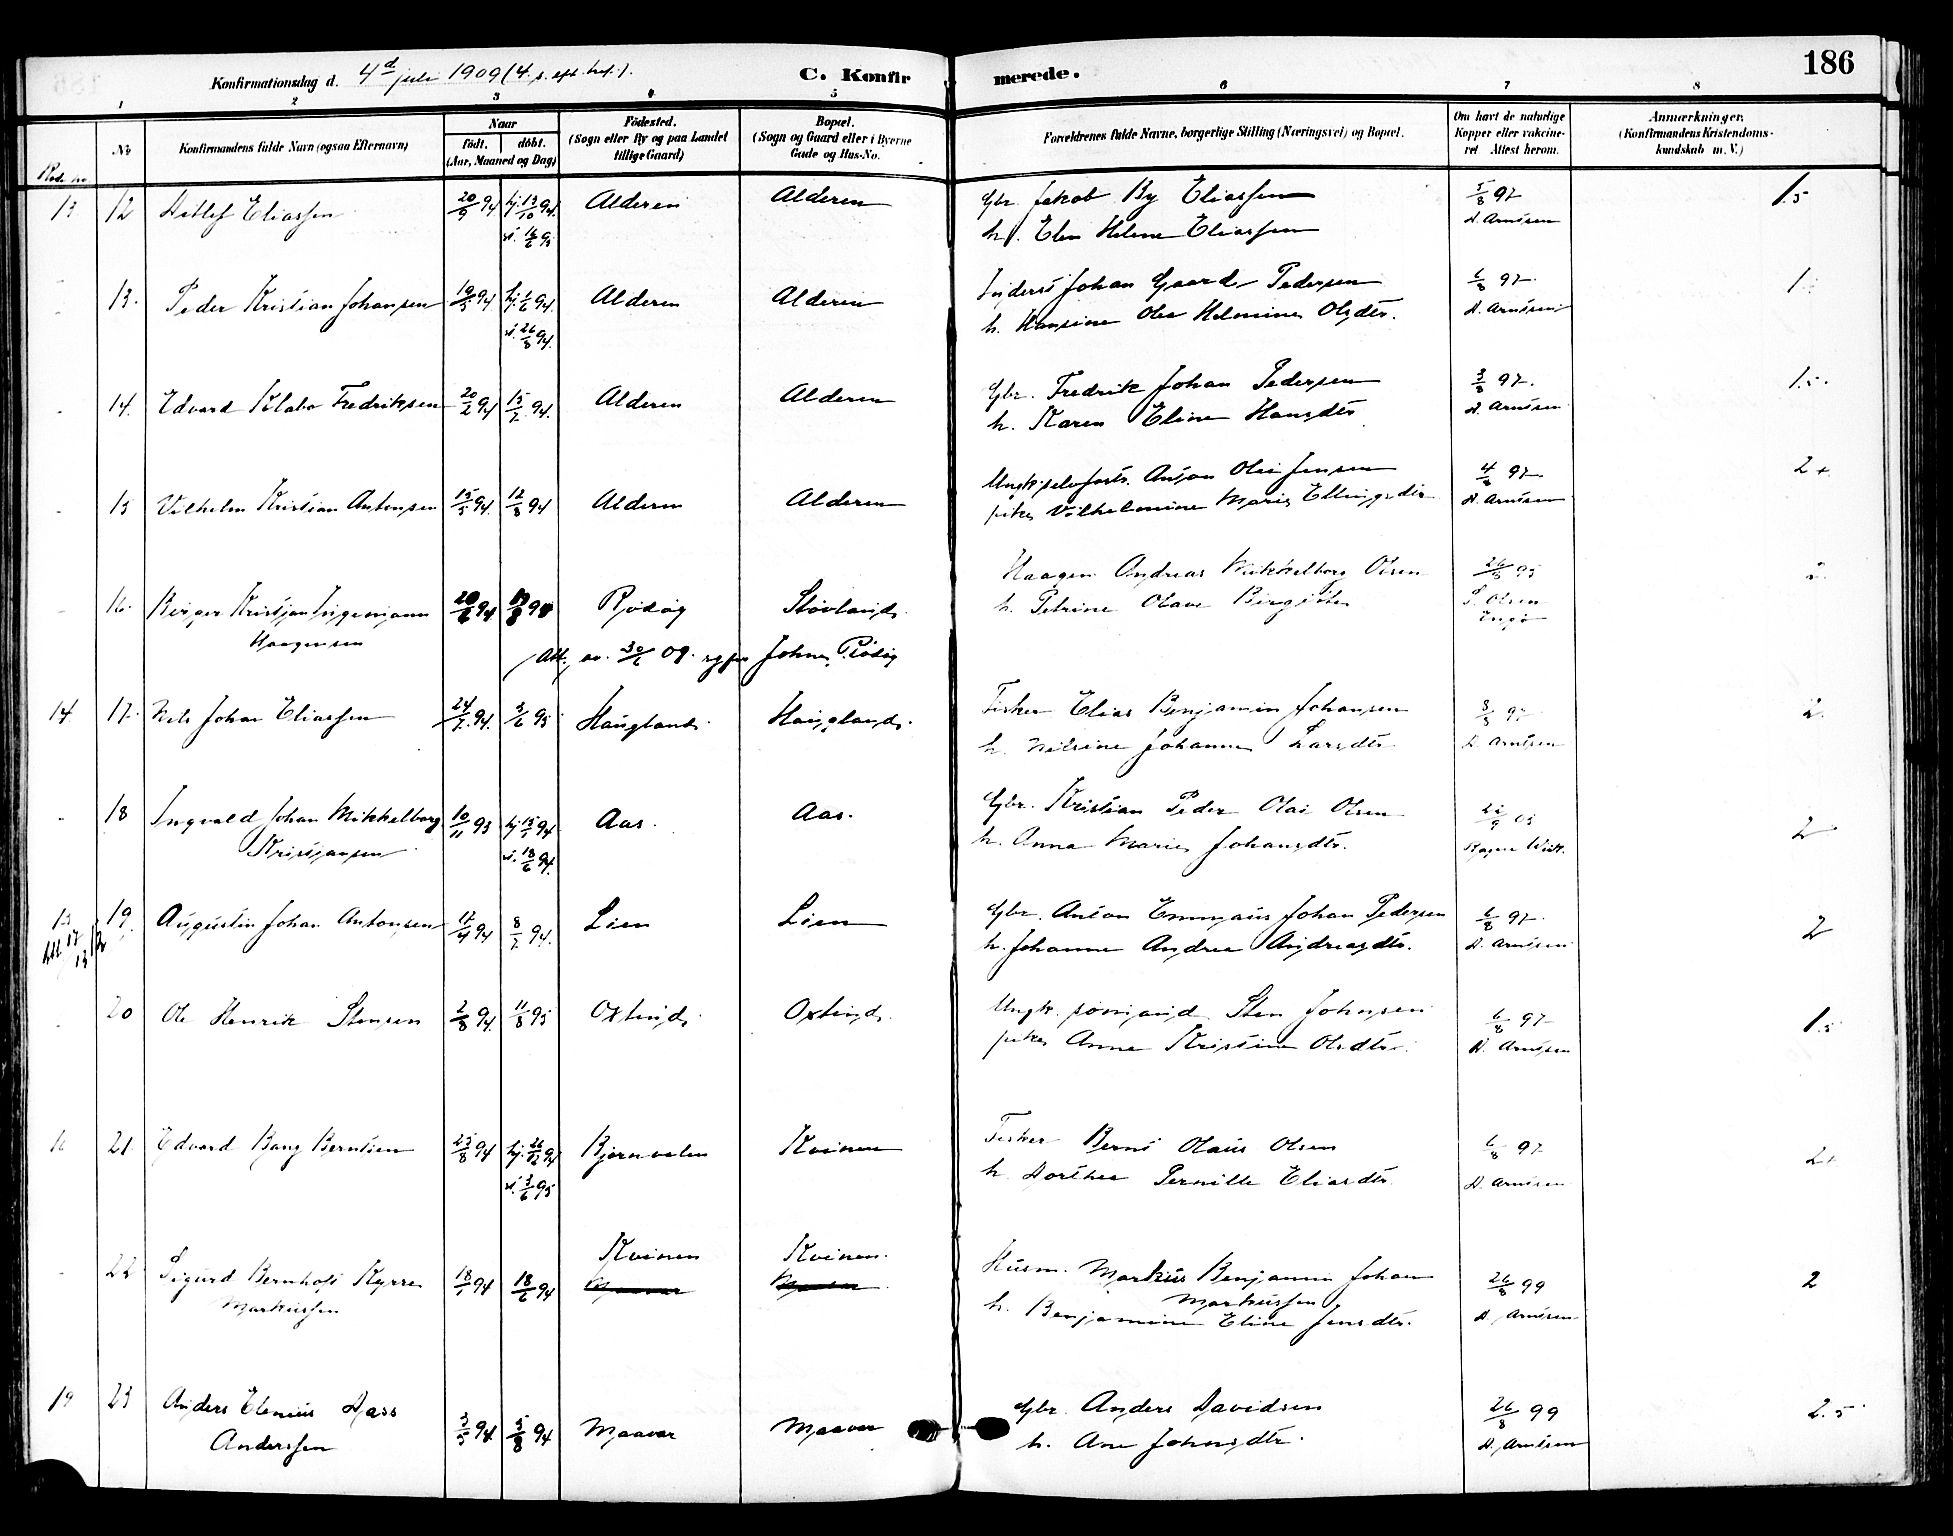 186
Konfirmationsdag d. 4d juli 1909 (4. s. eft. tref.).
C. Konfirmerede.
1 2 3 4 5 6 7 8
No
Konfirmandens fulde Navn (ogsaa Efternavn)
Naar
født. døbt.
(Aar, Maaned og Dag)
Fødested.
(Sogn eller By og paa Landet
tillige Gaard)
Bopæl.
(Sogn og Gaard eller i Byerne
Gade og Hus-No.
Forældrenes fulde Navne, borgerlige Stilling (Næringsvei) og Bopæl.
Om havt de naturlige
Kopper eller vakcine-
ret Attest herom.
Anmærkninger.
(Konfirmandens Kristendoms-
kundskab m. V.)
13 12 Ditlef Eliassen 20/9 94 hj. 13/10 94. Alderen Alderen Gbr. Jakob By Eliassen 5/8 97 1.5
k. 16/6 95 h. Elen Helene Eliassen A. Arntsen
13. Peder Kristian Johansen 19/5 94 hj. 1/6 94. Alderen Alderen Johan Gaard Pedersen 6/8 97 1
k. 26/8 94. h. Hansine Olea Helmine Olsdtr. A. Arntsen
14. Edvard Klabo Fredriksen 20/2 94 15/7 94. Alderen Alderen Gbr. Fredrik Johan Pedersen 3/8 97. 1.5.
h. Karen Eline Hansdtr A. Arntsen
15 Vilhelm Kristian Antonsen 15/5 94. 12/8 94 Alderen Alderen Anton Olai Jensen 4/8 97 2+
pike Vilhelmine Marie Ellingsdtr A. Arntsen
16. Birger Kristian Ingemann 20/6 94 94 Rødøy Støvland Haagen Andreas Mikkelborg Olsen 26/8 95 2.
Haagensen h. Petrine Olave Birgitte S. Olsen
Att. av. 30/6 09. Rødøy
14 17. Nils Johan Eliassen 24/7 94. 3/6 95 Haugland Haugland Fisker Elias Benjamin Johansen 8/8 97 2.
h. Nilsine Johanne Larsdtr. A. Arntsen
18 Ingvald Johan Mikkelborg 10/11 93 94 Aas. Aas. Gbr. Kristian Peder Olai Olsen 2
Kristiansen k. 18/6 94. h. Anna Marie Johansdtr.
19. Augustin Johan Antonsen 17/4 94 8/7 94. Lien Lien Gbr. Anton Emmaus Johan Pedersen 6/8 97. 2
h. Johanne Andrea Andreasdtr. A. Arntsen
20 Ole Henrik Stensen 2/8 94 11/8 95 Oxtind Oxtind Ungk. sømand Sten Johnsen 6/8 97 1.5
pike Anne Kristine Olsdtr. A. Arntsen
16 21 Edvard Bang Berntsen 25/8 94 hj. 26/12 94 Bjørnvalen Kvinen Fisker Bernt Olaus Olsen 6/8 97 2+
k. 3/6 95 h. Dorthea Pernille Eliasdtr. A. Arntsen
22 Sigurd Bernhoft Kyrre 94 18/6 94 Kvinen Kvinen. Husm. Markus Benjamin Johan 26/8 99 2
Markussen Maavær Markussen
h. Benjamine Eline Jensdtr. A. Arntsen
19 23 Anders Elenius Dass 3/5 94 5/8 94 Maavær Maavær Gbr. Anders Davidsen 26/8 99 2.5
Anderssen h. Ane Johnsdtr. A. Arntsen